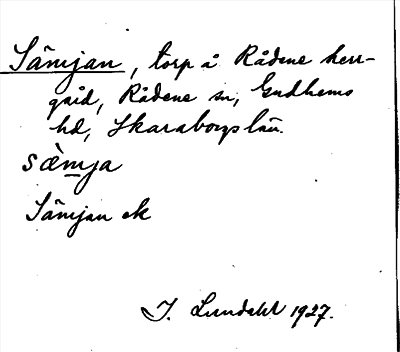 Sämjan, torp å Rådene herr-
gård, Rådene sn, Gudhems
hd, Skaraborgs län.
sæ̀mja
Sämjan ek
I. Lundahl 1927.